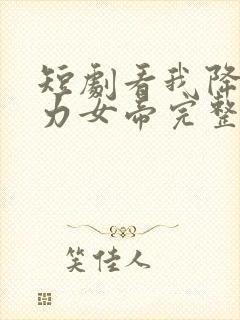 短劇看我降
力女帝完整
笑佳人